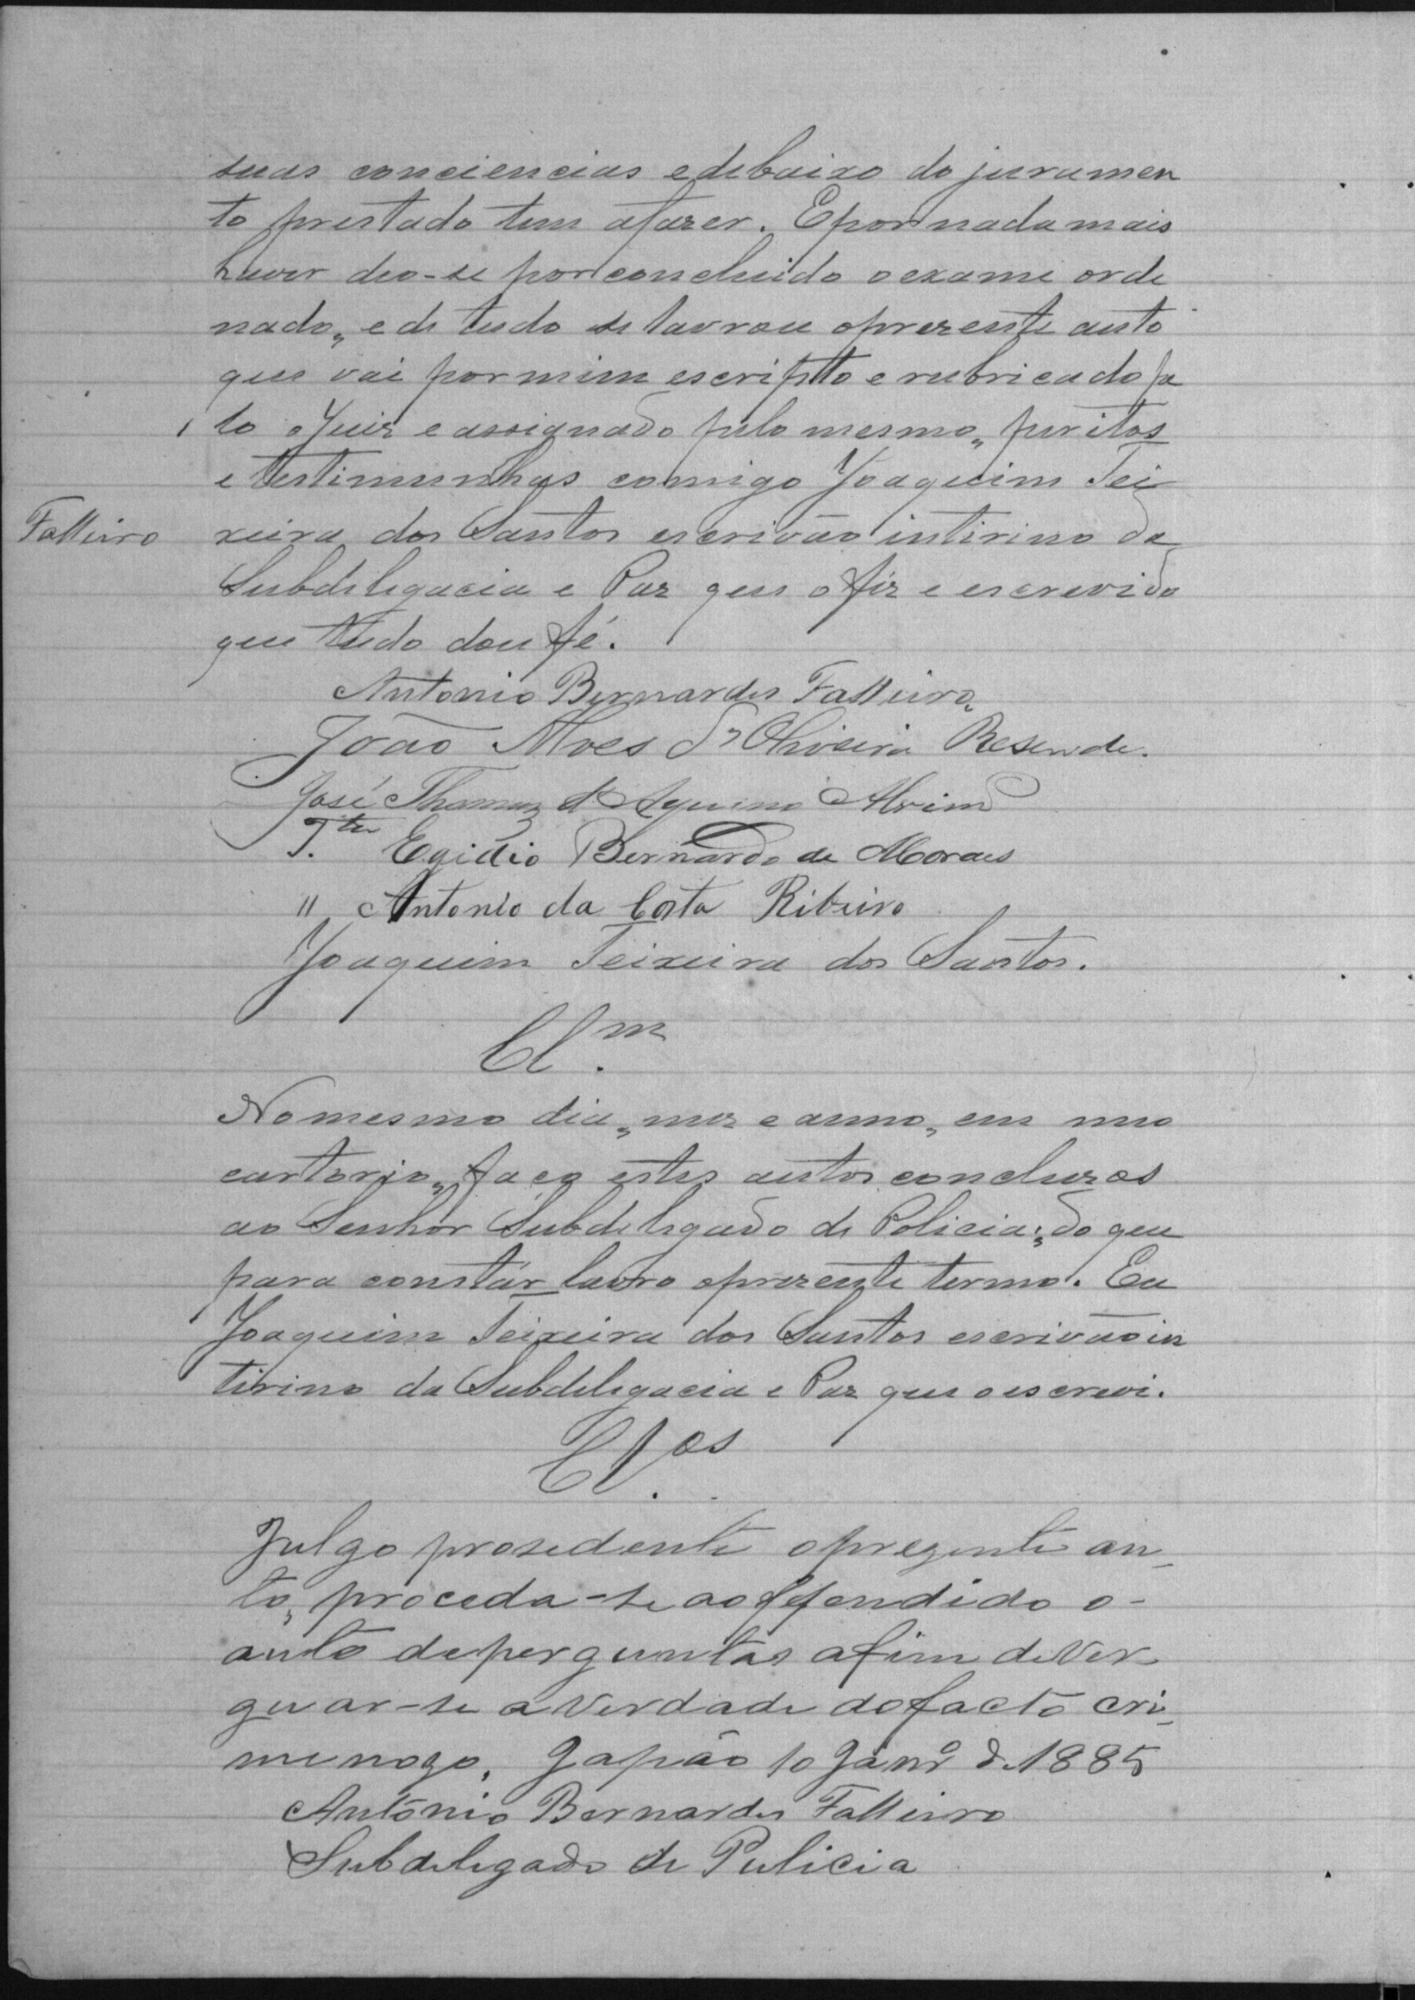 suas conciencias e debaixo do juramen
to prestado tem a fazer. E por nada mais
haver deo-se por concluido o exame orde
nado, e de tudo se lavrou o prezente auto
que vai por mim escripto e rubricado pe
lo o Juiz e assignado pelo mesmo, peritos
e testimunhas comigo Joaquim Tei
Falleiro
xeira dos Santos escrivão intirino da
Subdelegacia e Paz que o fiz e escrevi do
que tudo dou fé.
Antonio Bernardes Falleiro,
João Alves d'Oliveira Resende.
José Thomaz d'Aquino Alvim
T.tes Egidio Bernardo de Moraes
" Antonio da Costa Ribeiro
Joaquim Teixeira dos Santos.
Cl.m
No mesmo dia, mez e anno, em meo
cartorio, faço estes autos concluzos
ao Senhor Subdelegado de Policia; do que
para constár lavro o prezente termo. Eu
Joaquim Teixeira dos Santos escrivão in
tirino da Subdelegacia e Paz que o escrevi.
Cl.os
Julgo prosedente o prezente au-
to, proceda-se ao offendido o-
auto de perguntas afim de Ver-
guar-se a Verdade do facto cri-
menozo. Japão 10 Janrº de 1885
Antonio Bernardes Falleiro
Subdelegado de Pulicia